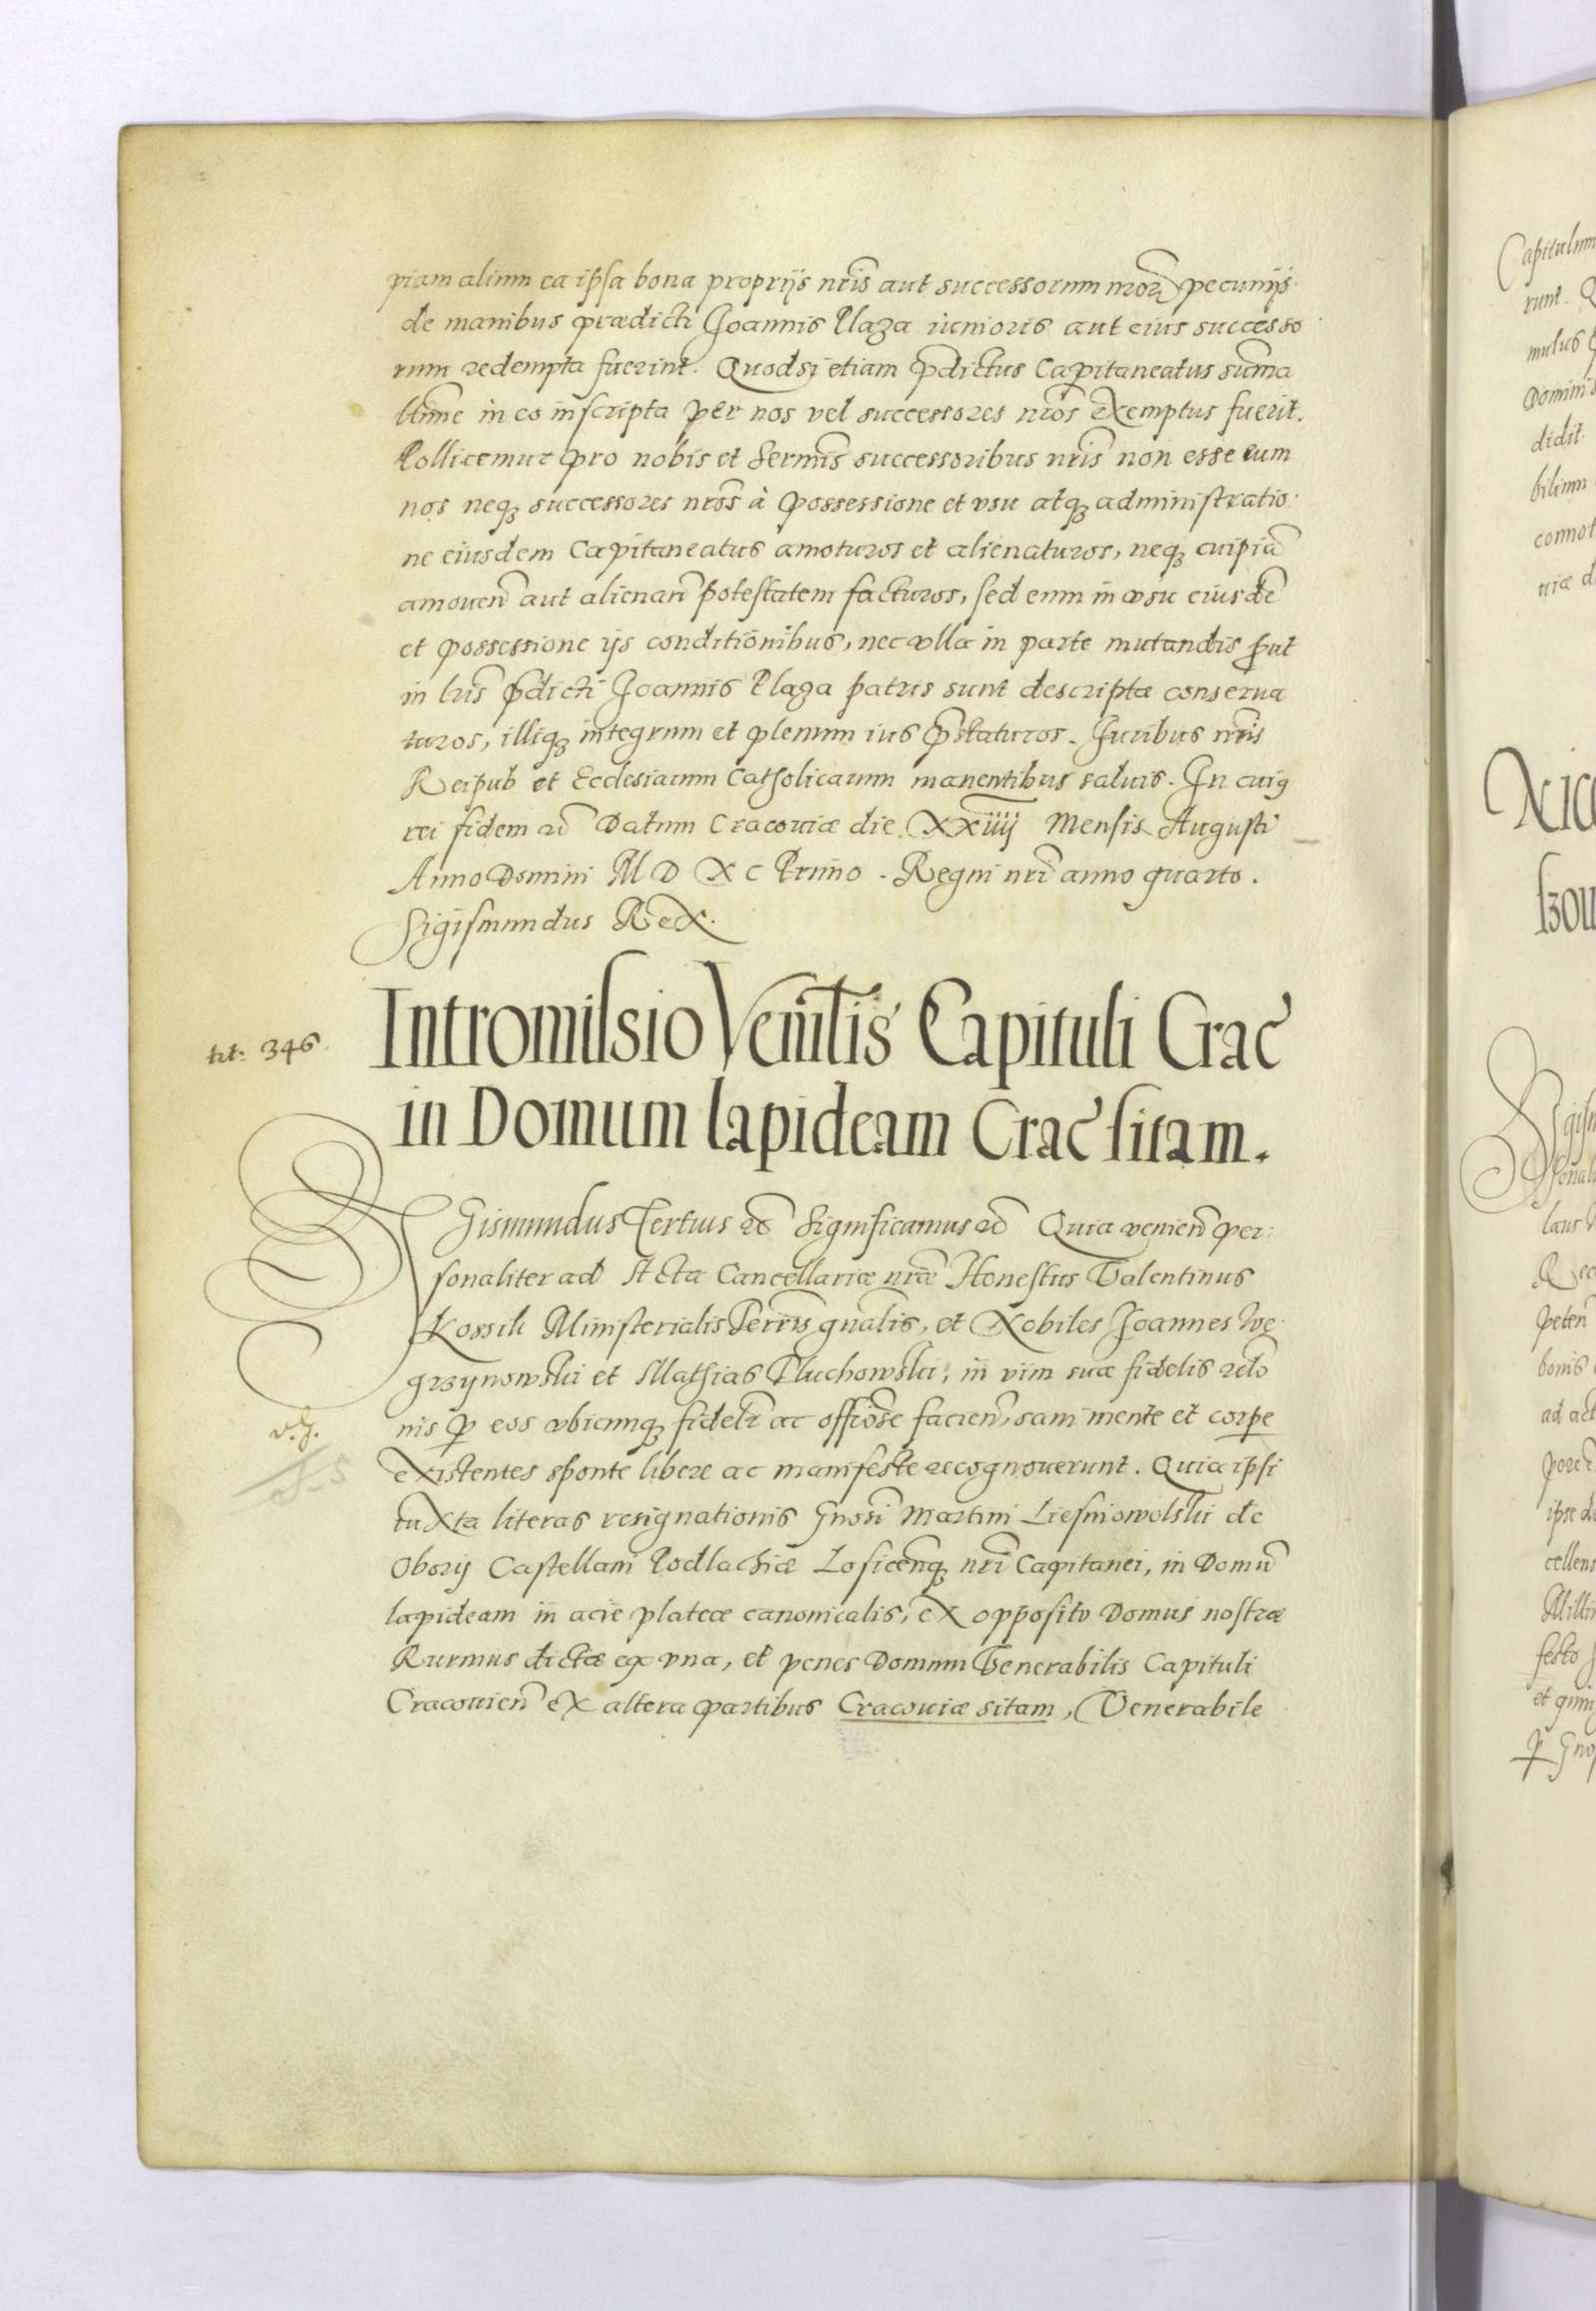 piam alium ea ipsa bona proprijs nr̃is aut successorum nr̃or̃ pecunijs
de manibus prædicti Joannis Plaza iunioris aut eius successo
rum redempta fuerint. Quodsi etiam p̃dictus Capitaneatus sum̃a
ltĩme in eo inscripta per nos vel successores nr̃os exemptus fuerit.
Pollicemur pro nobis et Serm̃is successoribus nr̃is non esse eum
nos neq̃ successores nr̃os à possessione et vsu atq̃ administratio
ne eiusdem Capitaneatus amoturos et alienaturos, neq̃ cuipiã
amoueñ aut alienañ potestatem facturos, sed eum in vsu eiusdẽ
et possessione ijs conditionibus, nec vlla in parte mutandis p̃ut
in lr̃is p̃dicti Joannis Plaza patris sunt descriptæ conserua
turos, illiq̃ integrum et plenum ius p̃staturos. Juribus nr̃is
Reipub et Ecclesiarum Catholicarum manentibus saluis. In cuiꝯ
rei fidem &c̃ Datum Cracouiæ die XXiiij Mensis Augusti
Anno Domini M D XC Primo. Regni nr̃i anno quarto.
Sigismundus Rex.
tit: 346
Intromissio Ven̄lis Capituli Crac̃
in Domum lapideam Crac̃ sitam.
SIGismundus Tertius &c̃ Significamus &c̃ Quia venieñ per
sonaliter ad Acta Cancellariæ nr̃æ Honestus Valentinus
Kossek Ministerialis Terr̃is gñalis, et Nobiles Joannes We
grzynowski et Mathias Pluchowski, in vim suæ fidelis relõ
nis p̱ eos vbicunq̃ fidelr̃ ac offiõse facieñ, sani mente et corpe
existentes sponte libere ac manifeste recognouerunt. Quia ipsi
iuxta literas resignationis Gñosi Martini Liesniowolski de
Obory Castellani Podlachiæ Losiceñq̃ nr̃i Capitanei, in Domũ
lapideam in acie plateæ canonicalis, ex opposito Domus nostræ
Rurmus dictæ ex vna, et penes Domum Venerabilis Capituli
Cracouieñ ex altera partibus Cracouiæ sitam, Venerabile